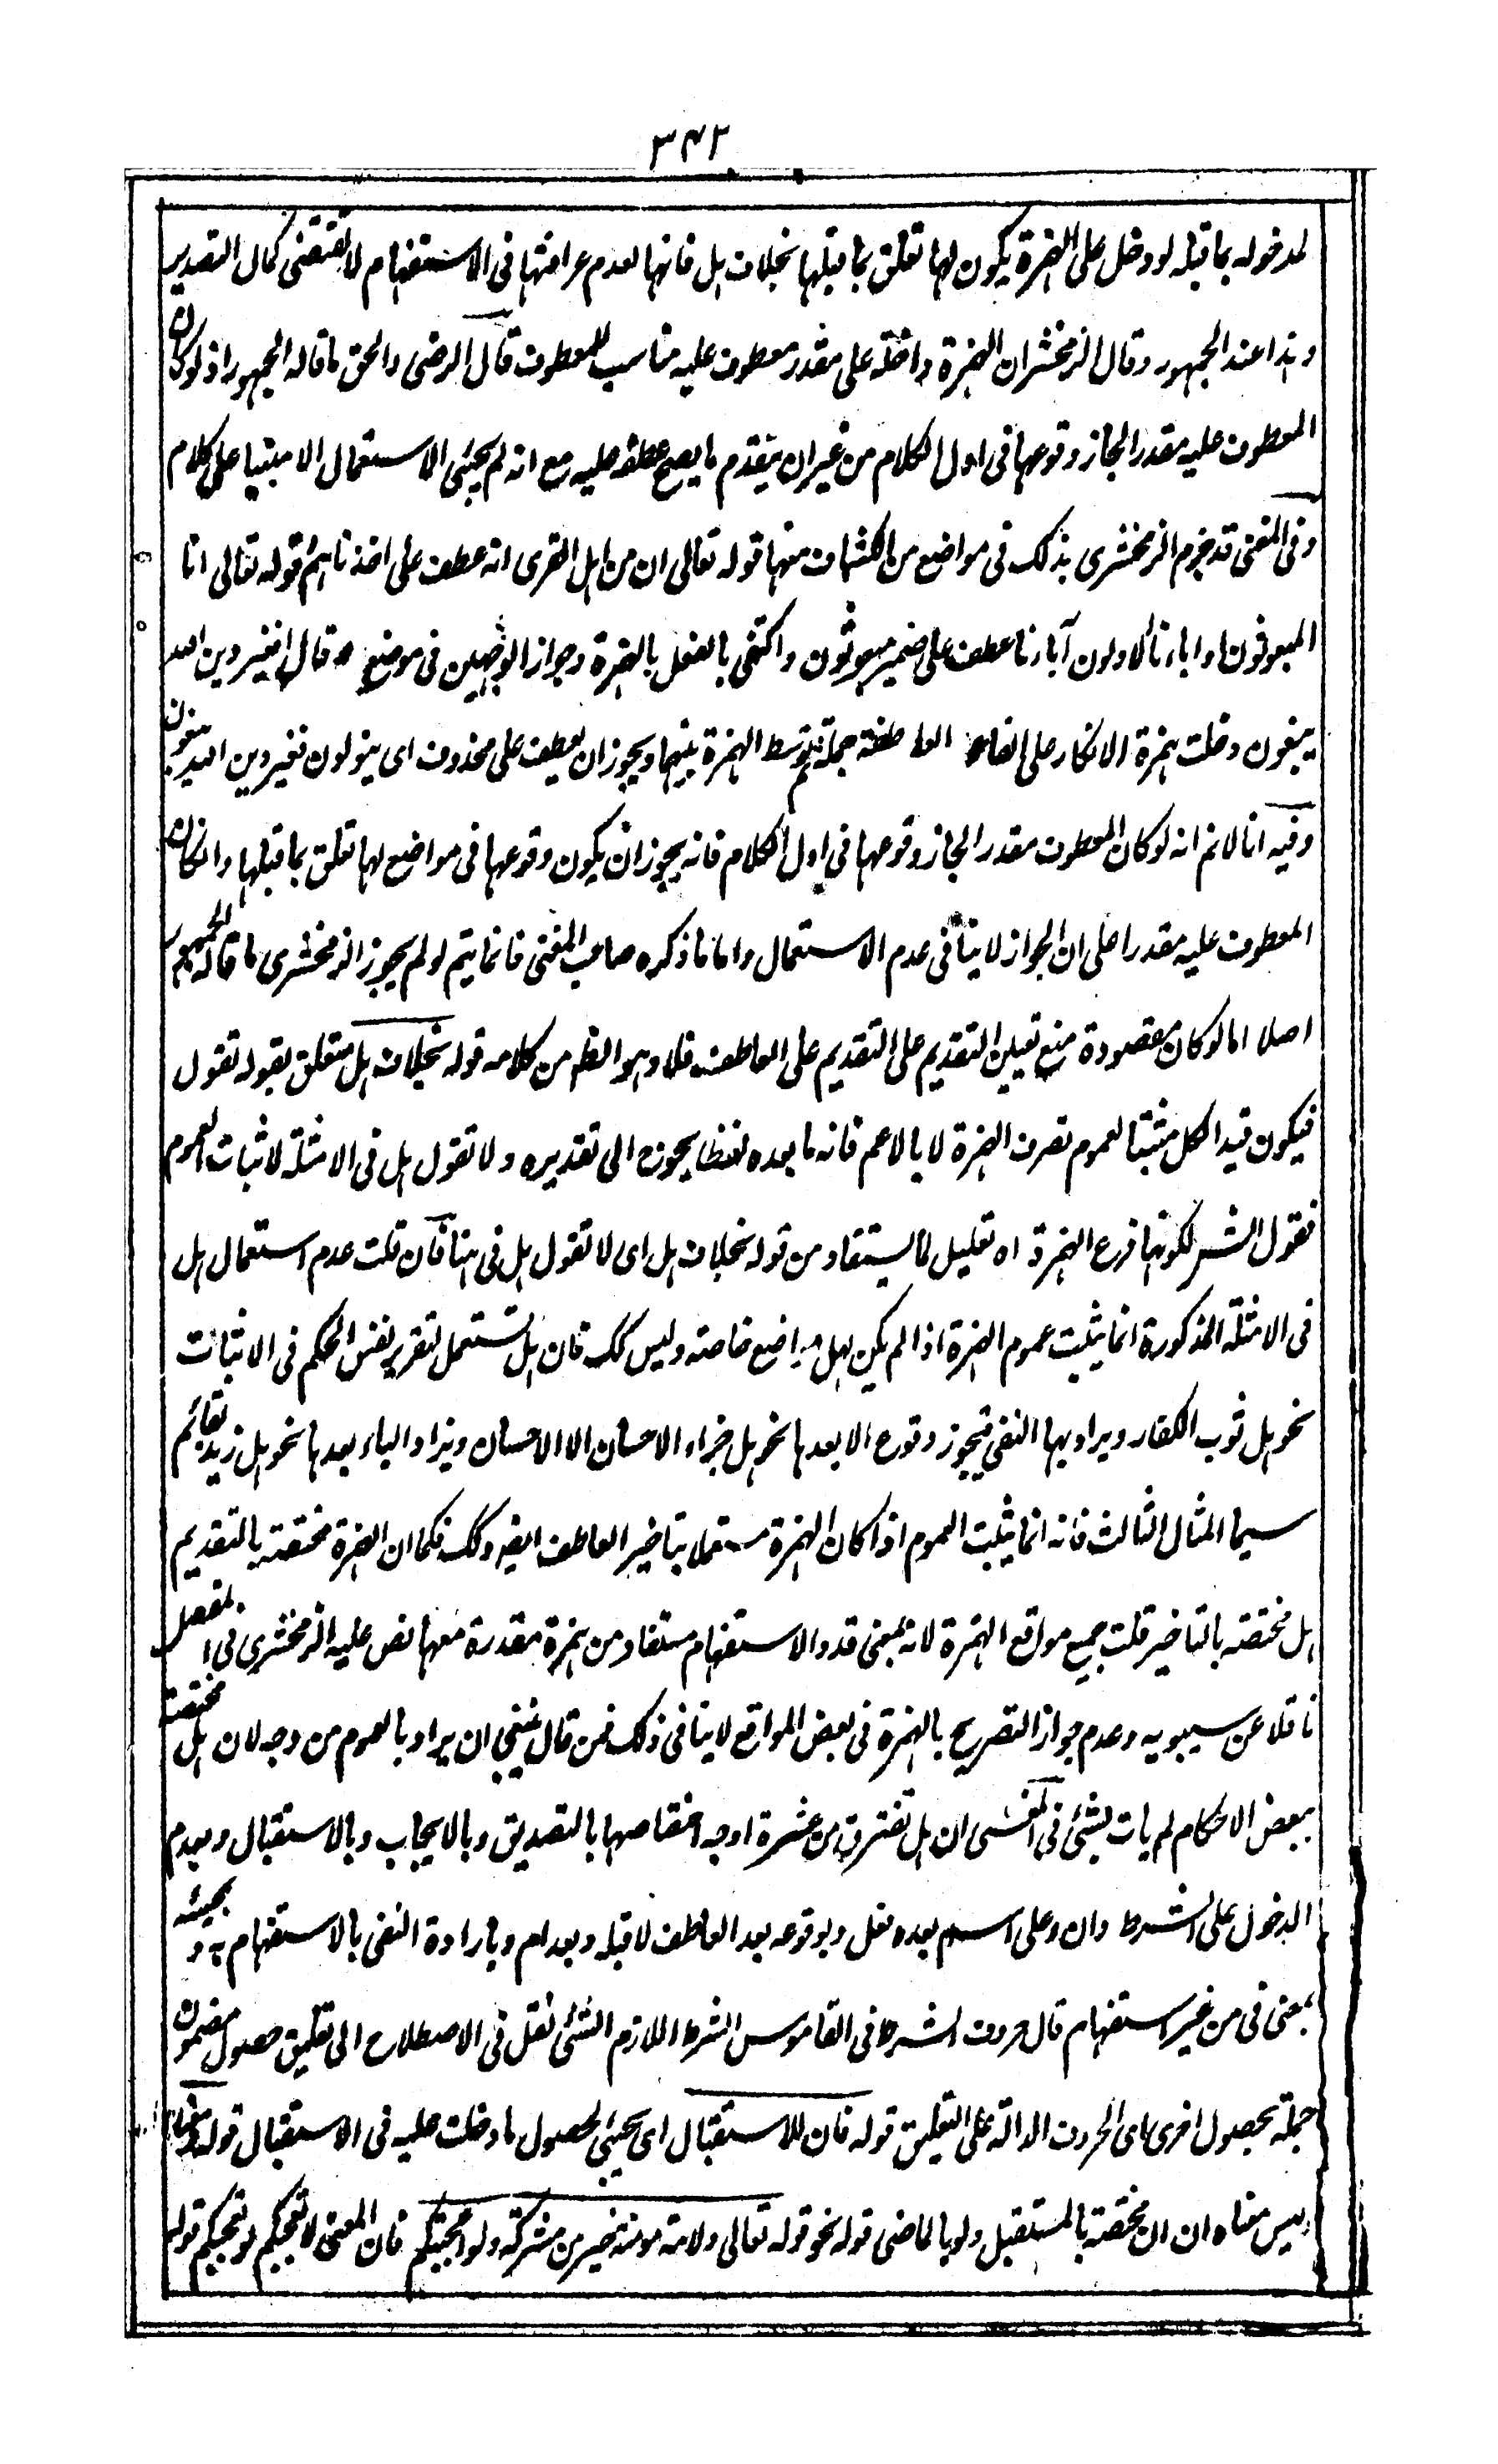 ٣٤٢
لمدخوله بما قبله لو دخل على الهمزة يكون لها تعلق بما قبلها بخلاف هل فانها لعدم عراقتها فى الاستفهام لا تقتضى كمال التصدير
وهذا عند الجمهور وقال الزمخشر ان الهمزة داخلة على مقدر معطوف عليه مناسب للمعطوف قال الرضى والحق ما قاله الجمهور اذ لو كان
المعطوف عليه مقدر الجاز وقوعها فى اول الكلام من غير ان يتقدم ما يصح عطفه عليه مع انه لم يجئ الاستعمال الا مبنيا على كلام
وفى المغنى قد جزم الزمخشرى بذلك فى مواضع من الكشاف منها قوله تعالى افامن اهل القرى انه عطف على اخذناهم قوله تعالى انا
المبعوثون او اباءنا الاولون آباءنا عطف على ضمير مبعوثون واكتفى بالفصل بالهمزة وجواز الوجهين فى موضع قال افغير دين الله
يبغون دخلت همزة الانكار على الفاء العاطفة جملة ثم توسط الهمزة بينهما ويجوز ان يعطف على محذوف اى يتولون فغير دين الله يبغون
وفيه انا لا نم انه لو كان المعطوف مقدر الجاز وقوعها فى اول الكلام فانه يجوز ان يكون وقوعها فى مواضع لها تعلق بما قبلها وان كان
المعطوف عليه مقدرا على ان الجواز لا ينافى عدم الاستعمال واما ما ذكره صاحب المغنى فانما يتم لو لم يجوز الزمخشرى ما قاله الجمهور
اصلا اما لو كان مقصوده منع تعيين التقديم على التقديم على العاطف فلا وهو الظ من كلامه قوله بخلاف هل متعلق بقوله تقول
فيكون قيدا لكل مثبتا لعموم تصرف الهمزة لا بالاعم فانه ما بعده لفظا يحوج الى تقديره ولا تقول هل فى الامثلة لاثبات العموم
فقول الشر لكونها فرع الهمزة اه تعليل لما يستفاد من قوله بخلاف هل اى لا تقول هل فى هنا فان قلت عدم استعمال هل
فى الامثلة المذكورة انما يثبت عموم الهمزة اذا لم يكن لهل مواضع خاصة وليس كك فان هل تستعمل لتقرير نفس الحكم فى الاثبات
نحو هل ثوب الكفار ويراد بها النفى فيجوز وقوع الا بعدها نحو هل جزاء الاحسان الا الاحسان ويزاد الباء بعدها نحو هل زيد بقائم
سيما المثال الثالث فانه انما يثبت العموم اذا كان الهمزة مستعملا بتاخير العاطف ايضه وكك فكما ان الهمزة مختصة بالتقديم
هل مختصة بالتاخير قلت جميع مواقع الهمزة لانه بمعنى قد والاستفهام مستفاد من همزة مقدرة معها نص عليه الزمخشرى فى المفصل
ناقلا عن سيبويه وعدم جواز التصريح بالهمزة فى بعض المواقع لا ينافى ذلك فمن قال ينبغى ان يراد بالعموم من وجه لان هل مختصة
ببعض الاحكام لم يات بشئ فى المغنى ان هل تفترق من عشرة اوجه اختصاصها بالتصديق وبالايجاب وبالاستقبال وبعدم
الدخول على الشرط وان وعلى اسم بعده فعل وبوقوعه بعد العاطف لا قبله وبعد ام وبارادة النفى بالاستفهام به وبمجيئه
بمعنى فى من غير استفهام قال حروف الشرط فى القاموس الشرط اللازم الشئ نقل فى الاصطلاح الى تعليق حصول مضمون
جملة بحصول اخرى اى الحروف الدالة على التعليق قوله فان للاستقبال اى يجئ لحصول ما دخلت عليه فى الاستقبال قوله
وليس معناه ان ان مختصة بالمستقبل ولو بالماضى قوله نحو قوله تعالى ولامة مومنة خير من مشركة ولو اعجبتكم فان المعنى لا تعجبكم لو تعجبكم قوله